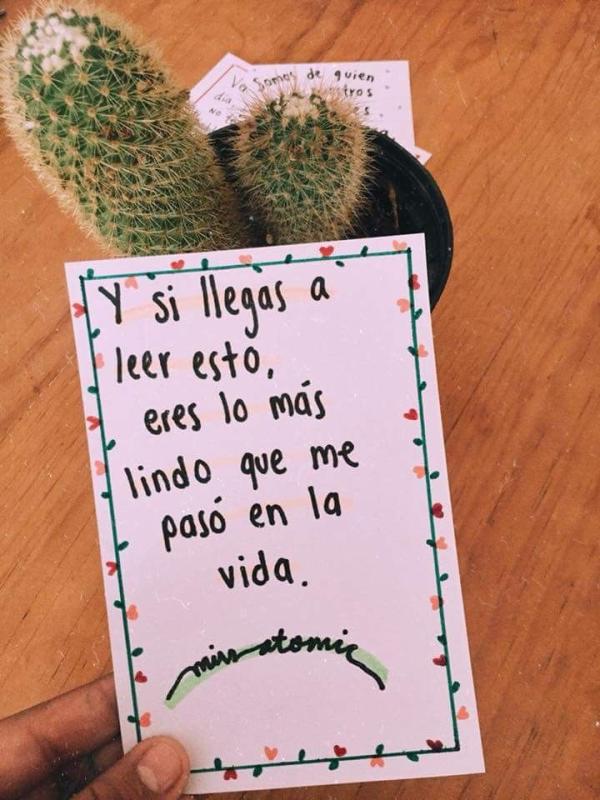 Va Somos de quien
dia
tros
No
es
Y si llegas a
leer esto,
eres lo más
lindo que me
pasó en la
vida.
miss atomic